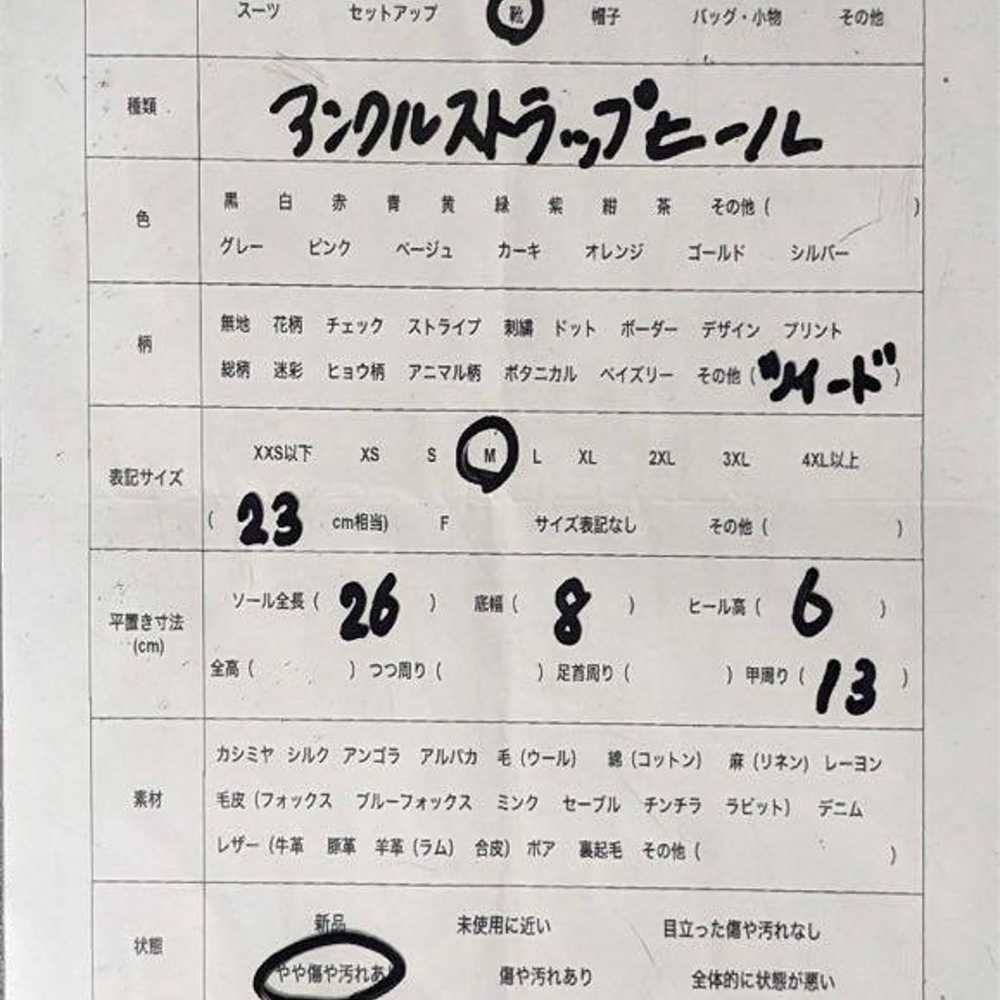 スーツ セットアップ 靴 帽子 バッグ・小物 その他
種類 アンクルストラップヒール
色
黒 白 赤 青 黄 緑 紫 紺 茶 その他 ( )
グレー ピンク ベージュ カーキ オレンジ ゴールド シルバー
柄
無地 花柄 チェック ストライプ 刺繍 ドット ボーダー デザイン プリント
総柄 迷彩 ヒョウ柄 アニマル柄 ボタニカル ペイズリー その他 ( "ツイード" )
表記サイズ
XXS以下 XS S M L XL 2XL 3XL 4XL以上
( 23 cm相当) F サイズ表記なし その他 ( )
平置き寸法
(cm)
ソール全長 ( 26 ) 底幅 ( 8 ) ヒール高 ( 6 )
全高 ( ) つつ周り ( ) 足首周り ( ) 甲周り ( 13 )
素材
カシミヤ シルク アンゴラ アルパカ 毛 (ウール) 綿 (コットン) 麻 (リネン) レーヨン
毛皮 (フォックス ブルーフォックス ミンク セーブル チンチラ ラビット) デニム
レザー (牛革 豚革 羊革 (ラム) 合皮) ボア 裏起毛 その他 ( )
状態
新品 未使用に近い 目立った傷や汚れなし
やや傷や汚れあり 傷や汚れあり 全体的に状態が悪い